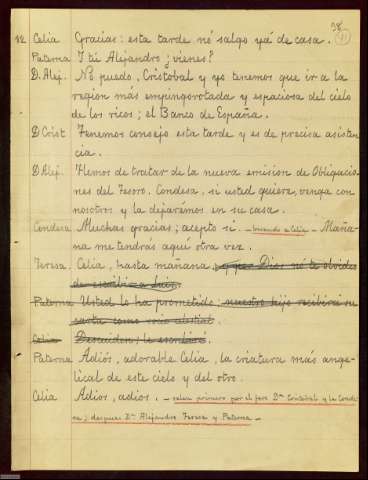 38
(11)
12 Celia Gracias: esta tarde nó salgo yá de casa.
Paterna Y tú Alejandro ¿vienes?
D. Alej. No puedo, Cristobal y yo tenemos que ir a la
region más empingorotada y espaciosa del cielo
de los ricos; el Banco de España.
D Crist Tenemos consejo esta tarde y es de precisa asisten
cia.
D Alej. Hemos de tratar de la nueva emision de Obligacio
nes del Tesoro. Condesa, si usted quiere, venga con
nosotros y la dejarémos en su casa.
Condesa Muchas gracias; acepto si. - besando a Celia - Maña-
na me tendrás aqui otra vez.
Teresa. Celia, hasta mañana y por Dios nó te olvides
de escribir a Luis.
Paterna Usted lo ha prometido: nuestro hijo recibirá su
carta como rocio celestial.
Celia Descuiden; le escribiré.
Paterna Adiós, adorable Celia, la criatura más ange-
lical de este cielo y del otro.
Celia Adios, adios. - salen primero por el foro Dn Cristobal y la Conde
sa; despues Dn Alejandro Teresa y Paterna -